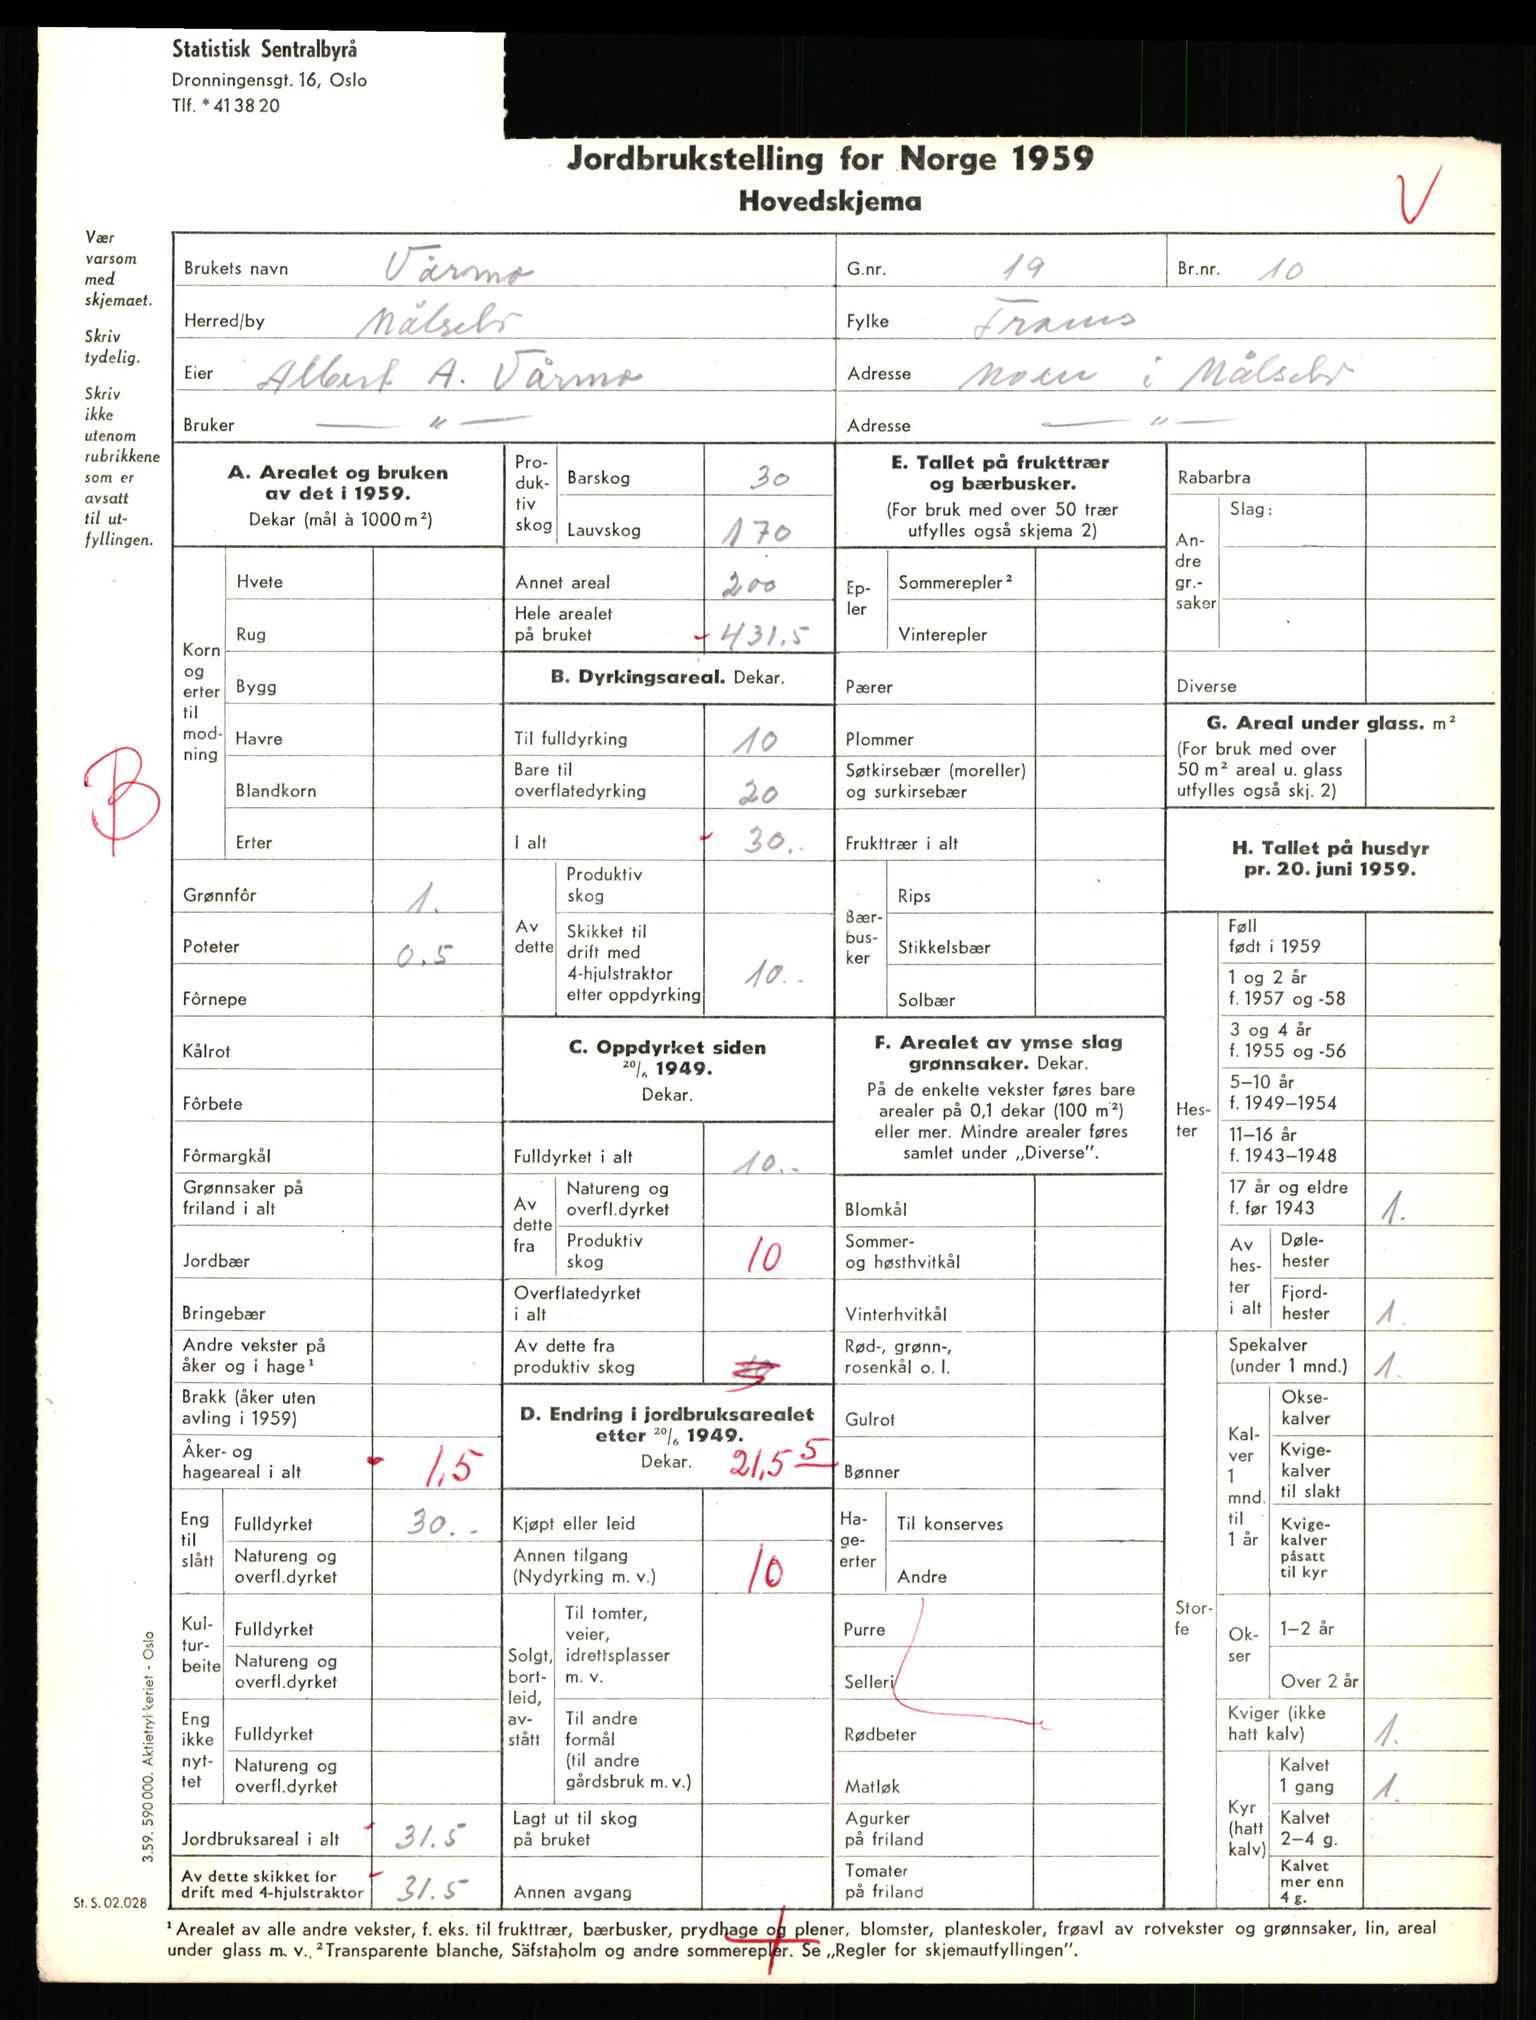 Statistisk Sentralbyrå
Dronningensgt. 16, Oslo
Tlf. *41 38 20
Jordbrukstelling for Norge 1959
Hovedskjema
V
Vær
varsom
med
skjemaet.
Skriv
tydelig.
Skriv
ikke
utenom
rubrikkene
som er
avsatt
til ut-
fyllingen.
B
Brukets navn Vårmo
G.nr. 19
Br.nr. 10
Herred/by Målselv
Fylke Troms
Eier Albert A. Vårmo
Adresse Moen i Målselv
Bruker — " —
Adresse — " —
A. Arealet og bruken
av det i 1959.
Dekar (mål à 1000 m²)
Korn
og
erter
til
mod-
ning
Hvete
Rug
Bygg
Havre
Blandkorn
Erter
Grønnfôr 1.
Poteter 0.5
Fôrnepe
Kålrot
Fôrbete
Fôrmargkål
Grønnsaker på
friland i alt
Jordbær
Bringebær
Andre vekster på
åker og i hage¹
Brakk (åker uten
avling i 1959)
Åker- og
hageareal i alt 1,5
Eng
til
slått
Fulldyrket 30.-
Natureng og
overfl.dyrket
Kul-
tur-
beite
Fulldyrket
Natureng og
overfl.dyrket
Eng
ikke
nyt-
tet
Fulldyrket
Natureng og
overfl.dyrket
Jordbruksareal i alt 31.5
Av dette skikket for
drift med 4-hjulstraktor 31.5
Pro-
duk-
tiv
skog
Barskog 30
Lauvskog 170
Annet areal 200
Hele arealet
på bruket 431.5
B. Dyrkingsareal. Dekar.
Til fulldyrking 10
Bare til
overflatedyrking 20
I alt 30..
Av
dette
Produktiv
skog
Skikket til
drift med
4-hjulstraktor
etter oppdyrking 10..
C. Oppdyrket siden
20/6 1949.
Dekar.
Fulldyrket i alt 10..
Av
dette
fra
Natureng og
overfl.dyrket
Produktiv
skog 10
Overflatedyrket
i alt
Av dette fra
produktiv skog
D. Endring i jordbruksarealet
etter 20/6 1949.
Dekar. 21,5 5
Kjøpt eller leid
Annen tilgang
(Nydyrking m. v.) 10
Solgt,
bort-
leid,
av-
stått
Til tomter,
veier,
idrettsplasser
m. v.
Til andre
formål
(til andre
gårdsbruk m. v.)
Lagt ut til skog
på bruket
Annen avgang
E. Tallet på frukttrær
og bærbusker.
(For bruk med over 50 trær
utfylles også skjema 2)
Ep-
ler
Sommerepler²
Vinterepler
Pærer
Plommer
Søtkirsebær (moreller)
og surkirsebær
Frukttrær i alt
Bær-
bus-
ker
Rips
Stikkelsbær
Solbær
F. Arealet av ymse slag
grønnsaker. Dekar.
På de enkelte vekster føres bare
arealer på 0,1 dekar (100 m²)
eller mer. Mindre arealer føres
samlet under „Diverse".
Blomkål
Sommer-
og høsthvitkål
Vinterhvitkål
Rød-, grønn-,
rosenkål o. l.
Gulrot
Bønner
Ha-
ge-
erter
Til konserves
Andre
Purre
Selleri
Rødbeter
Matløk
Agurker
på friland
Tomater
på friland
Rabarbra
An-
dre
gr.-
saker
Slag:
Diverse
G. Areal under glass. m²
(For bruk med over
50 m² areal u. glass
utfylles også skj. 2)
H. Tallet på husdyr
pr. 20. juni 1959.
Hes-
ter
Føll
født i 1959
1 og 2 år
f. 1957 og -58
3 og 4 år
f. 1955 og -56
5–10 år
f. 1949–1954
11–16 år
f. 1943–1948
17 år og eldre
f. før 1943 1.
Av
hes-
ter
i alt
Døle-
hester
Fjord-
hester 1.
Stor-
fe
Spekalver
(under 1 mnd.) 1.
Kal-
ver
1
mnd.
til
1 år
Okse-
kalver
Kvige-
kalver
til slakt
Kvige-
kalver
påsatt
til kyr
Ok-
ser
1–2 år
Over 2 år
Kviger (ikke
hatt kalv) 1.
Kyr
(hatt
kalv)
Kalvet
1 gang 1.
Kalvet
2–4 g.
Kalvet
mer enn
4 g.
3.59. 590 000. Aktietrykkeriet - Oslo
St. S. 02.028
¹ Arealet av alle andre vekster, f. eks. til frukttrær, bærbusker, prydhage og plener, blomster, planteskoler, frøavl av rotvekster og grønnsaker, lin, areal
under glass m. v. ² Transparente blanche, Säfstaholm og andre sommerepler. Se „Regler for skjemautfyllingen".